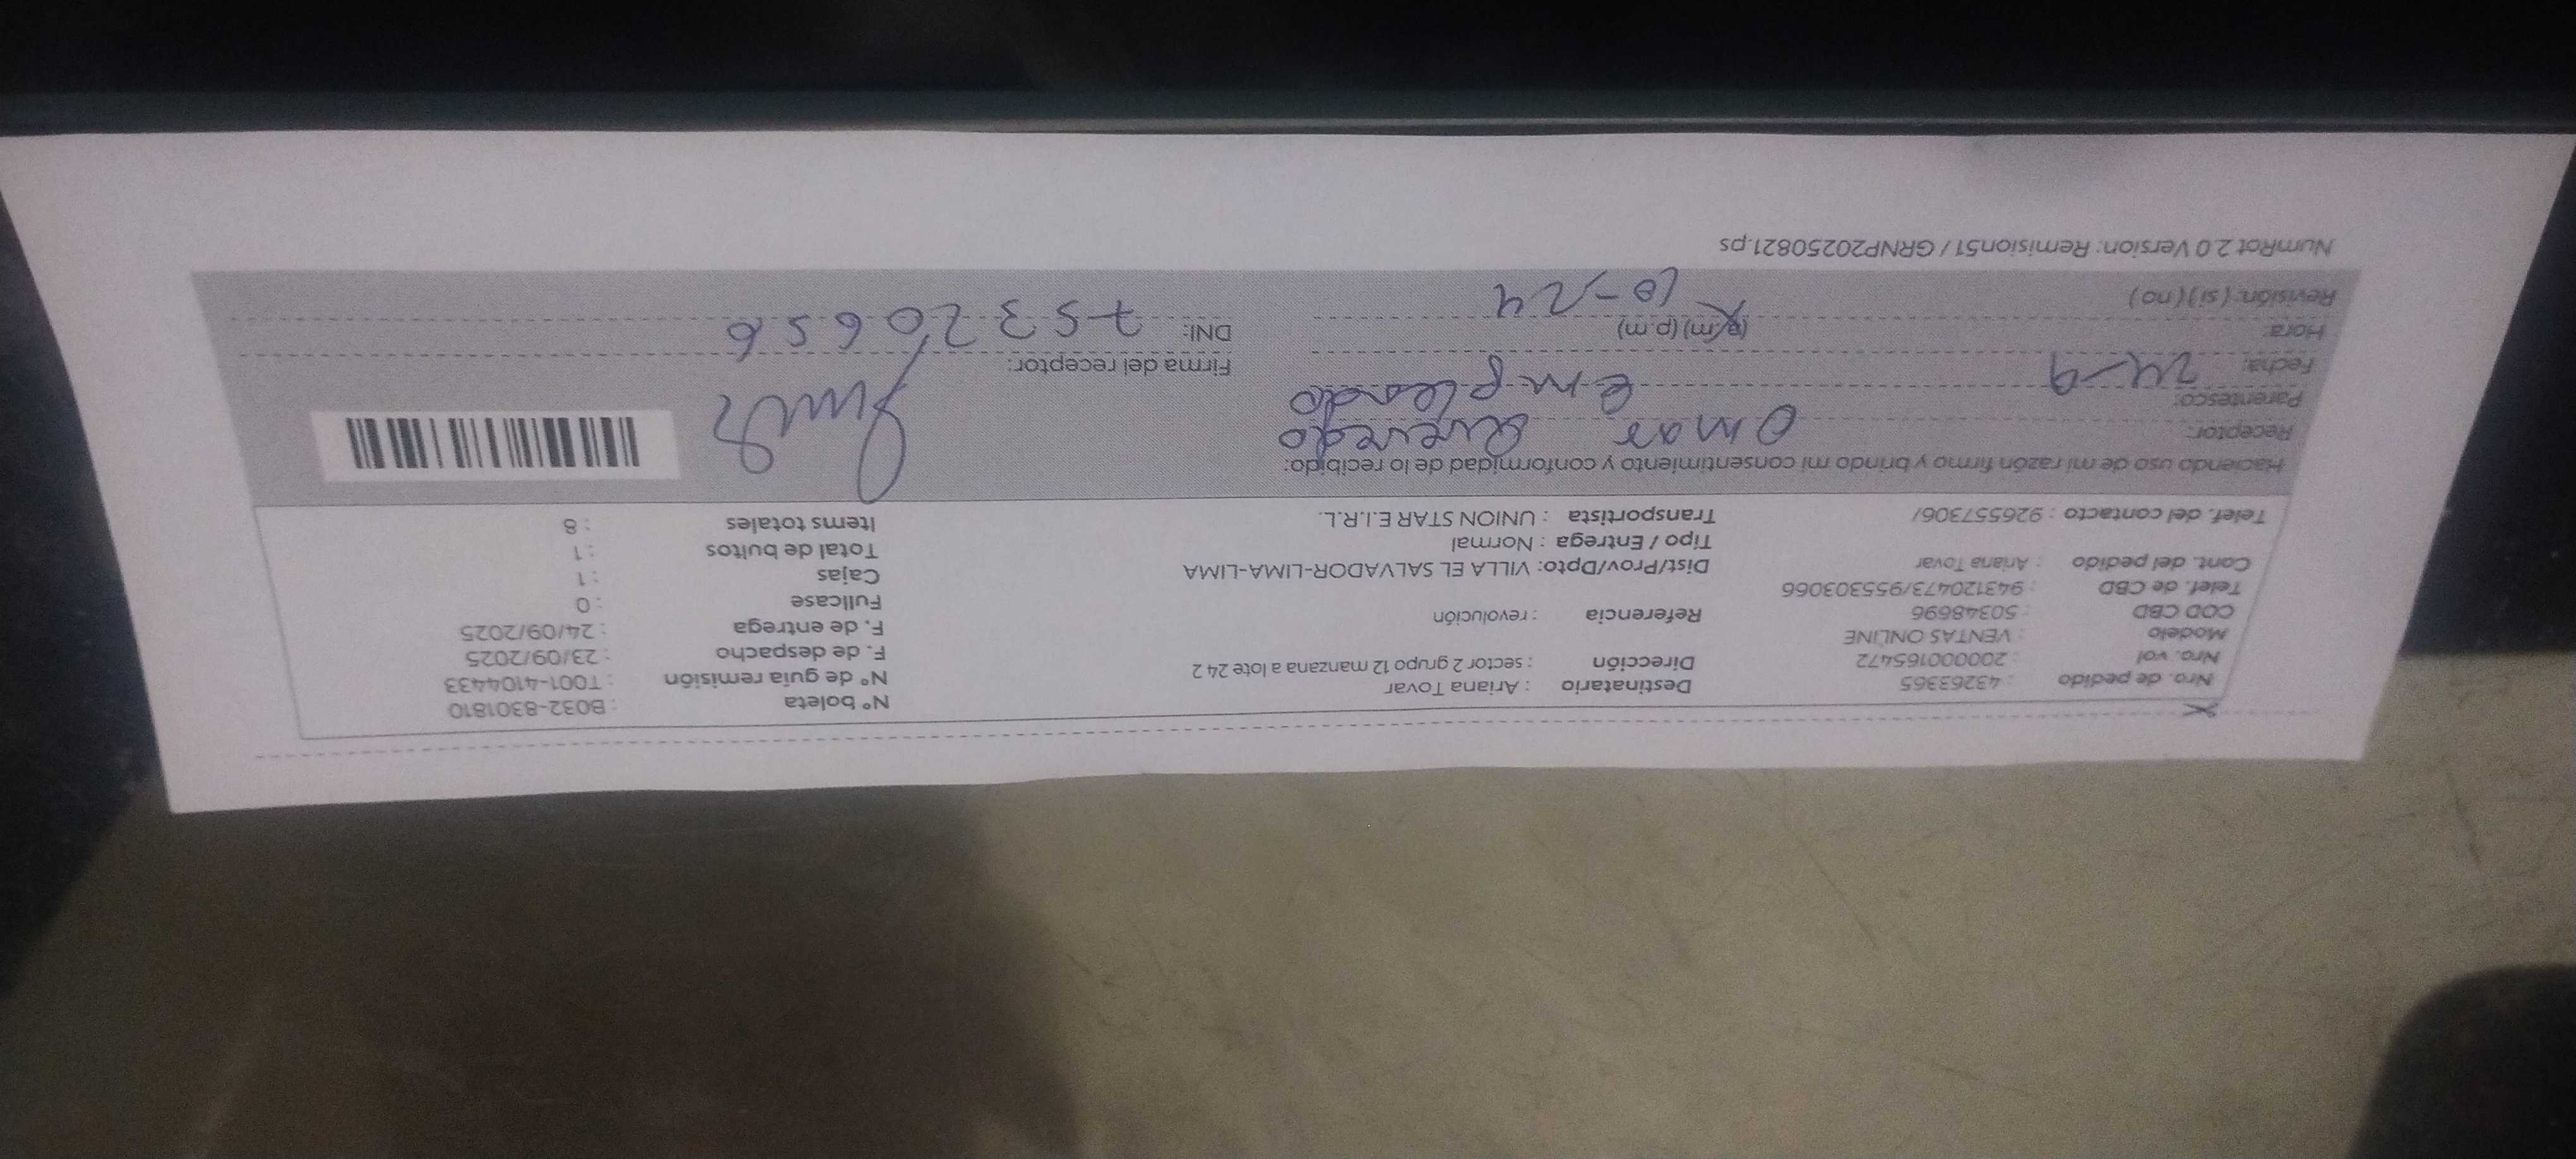 Nro. de pedido : 43263365
Nro. vol : 20000165472
Modelo : VENTAS ONLINE
COD CBD : 50348696
Telef. de CBD : 943120473/955303066
Cont. del pedido : Ariana Tovar
Telef. del contacto : 926557306/
Destinatario : Ariana Tovar
Dirección : sector 2 grupo 12 manzana a lote 24 2
Referencia : revolución
Dist/Prov/Dpto: VILLA EL SALVADOR-LIMA-LIMA
Tipo / Entrega : Normal
Transportista : UNION STAR E.I.R.L.
N° boleta : B032-8301810
N° de guía remisión : T001-4104433
F. de despacho : 23/09/2025
F. de entrega : 24/09/2025
Fullcase : 0
Cajas : 1
Total de bultos : 1
Items totales : 8
Haciendo uso de mi razón firmo y brindo mi consentimiento y conformidad de lo recibido:
Receptor: Omar
Parentesco: empleado
Fecha: 24-9
Hora: (a.m) (p.m) 10-24
Revisión: (si) (no)
Firma del receptor:
DNI: 75320656
NumRot 2.0 Version: Remision51 / GRNP20250821.ps